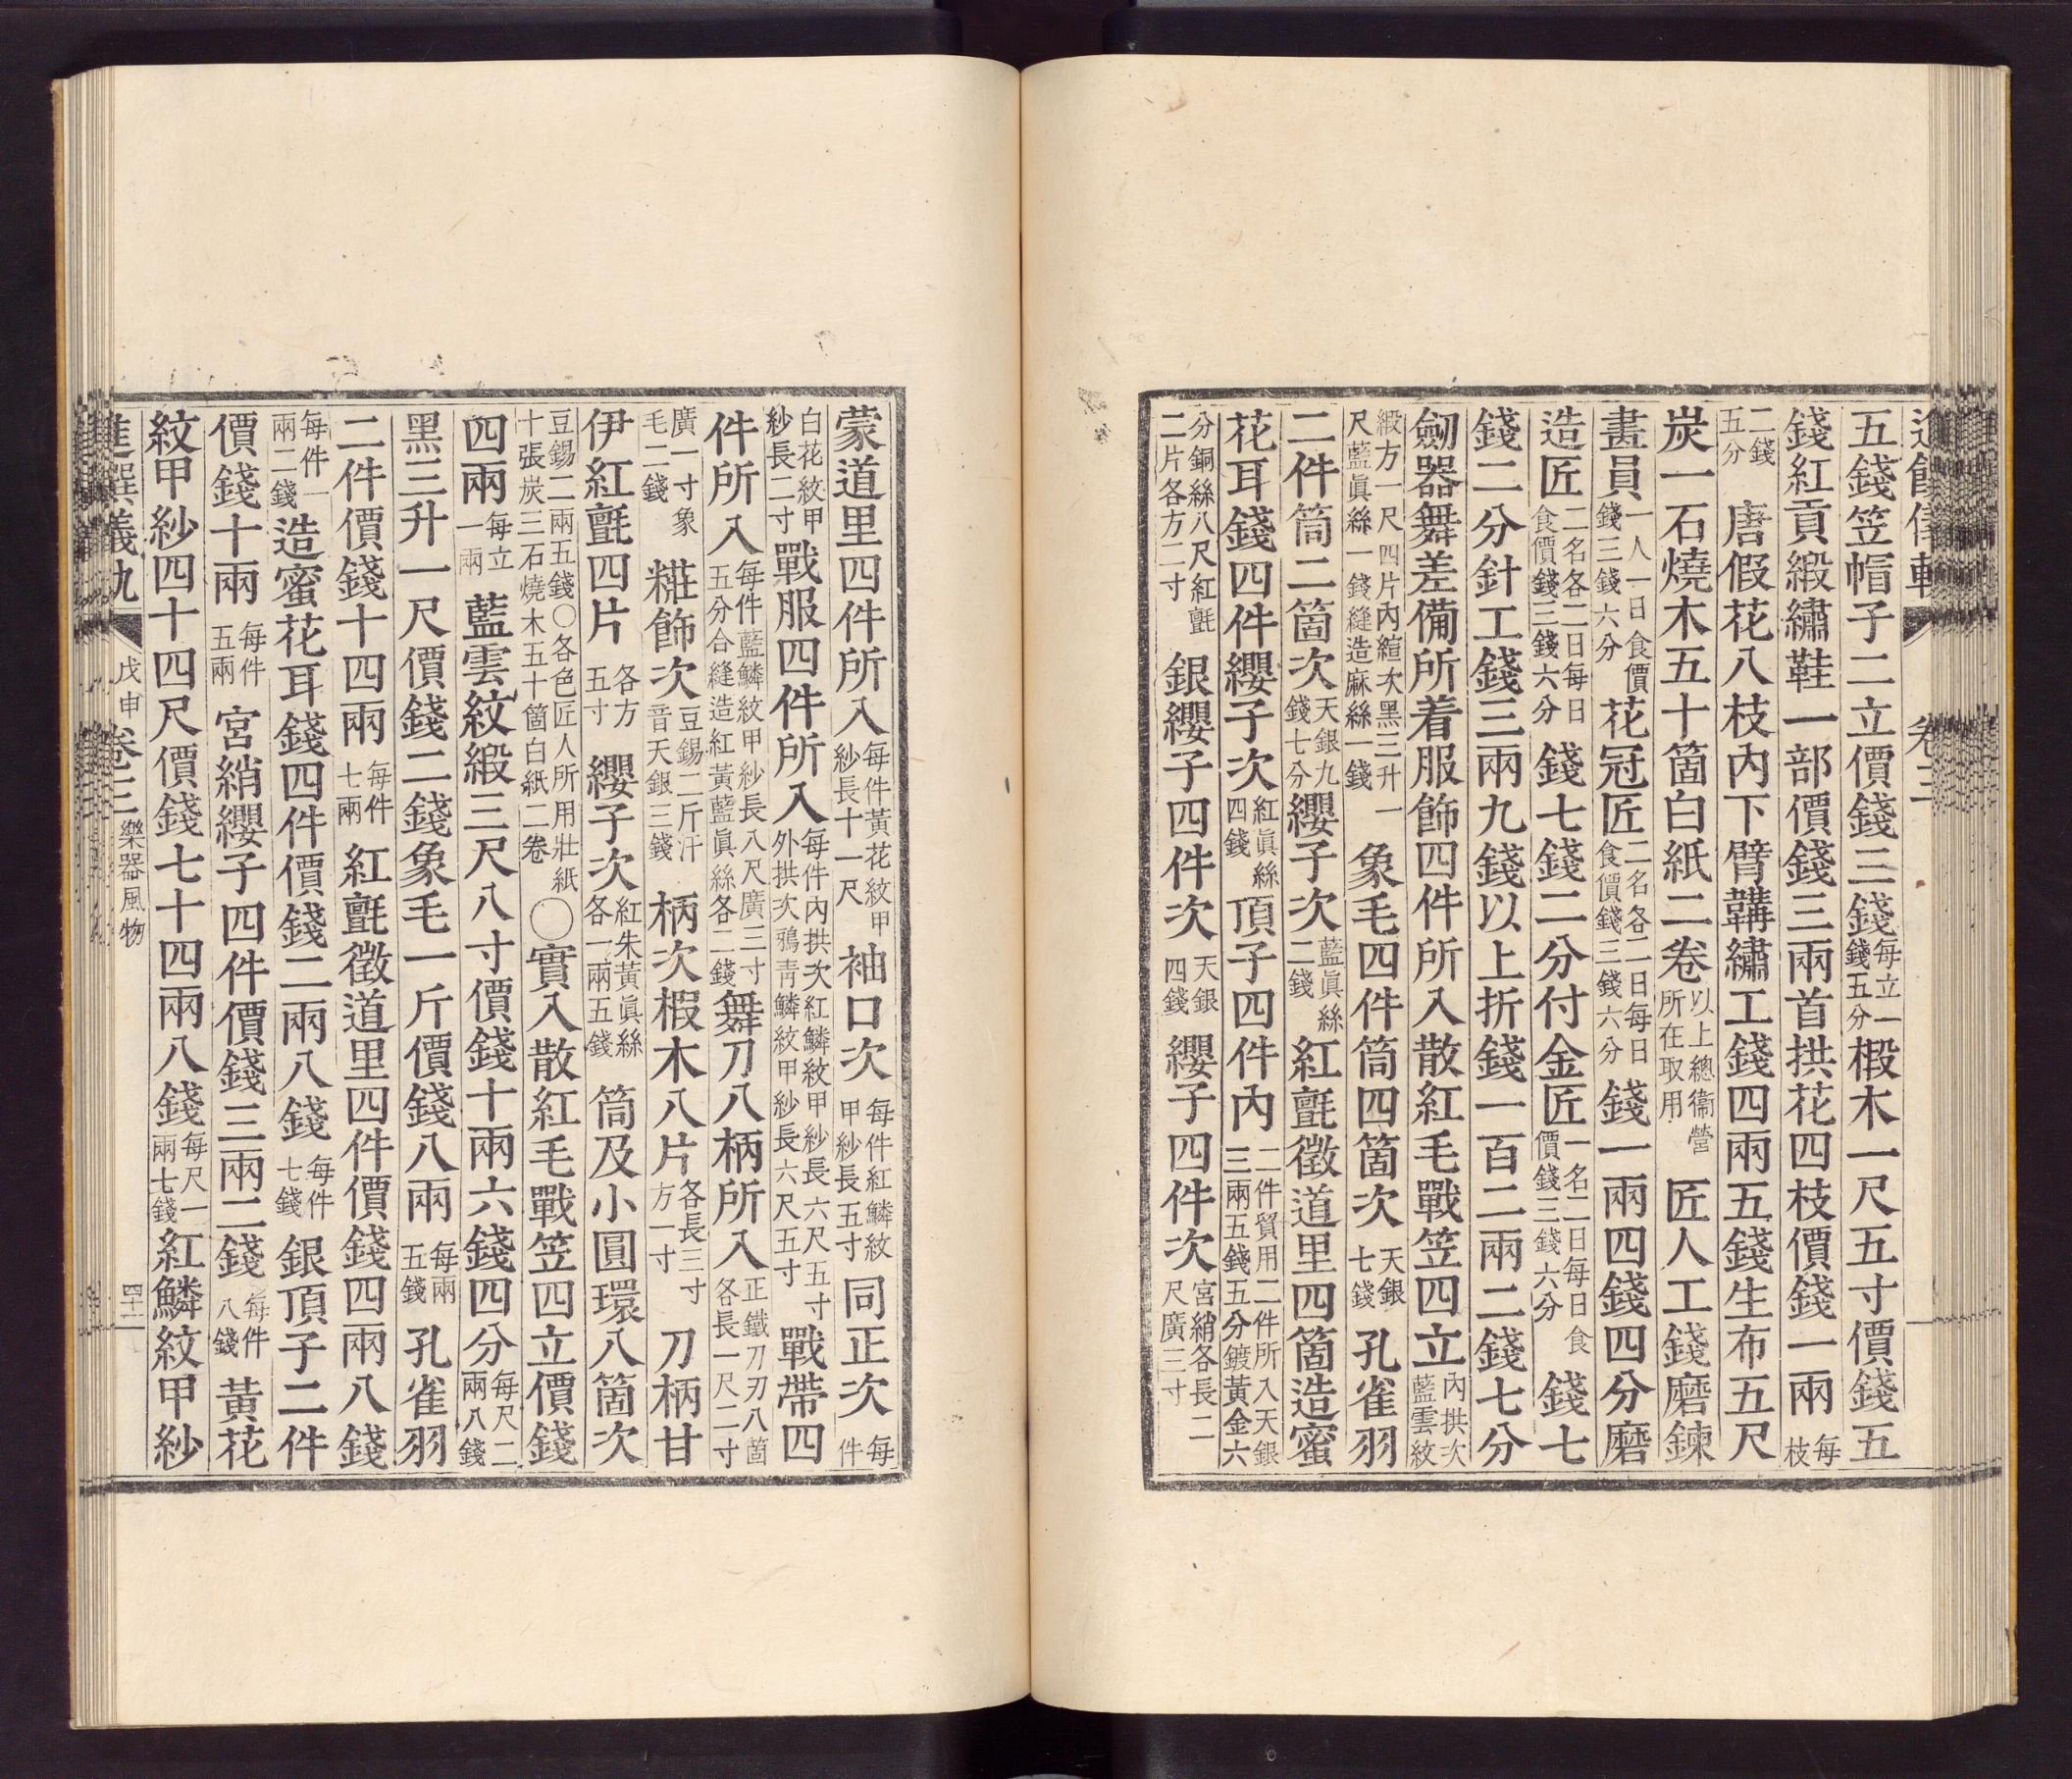 進饌儀軌 卷三
五錢笠帽子二立價錢三錢每立一錢五分椴木一尺五寸價錢五
錢紅貢緞繡鞋一部價錢三兩首拱花四枝價錢一兩每枝
二錢五分唐假花八枝內下臂韝繡工錢四兩五錢生布五尺
炭一石燒木五十箇白紙二卷以上總衞營所在取用匠人工錢磨鍊
畵員一人一日食價錢三錢六分花冠匠二名各二日每日食價錢三錢六分錢一兩四錢四分磨
造匠二名各二日每日食價錢三錢六分錢七錢二分付金匠一名二日每日食價錢三錢六分錢七
錢二分針工錢三兩九錢以上折錢一百二兩二錢七分
劒器舞差備所着服飾四件所入散紅毛戰笠四立內拱次藍雲紋
緞方一尺四片內縇次黑三升一尺藍眞絲一錢縫造麻絲一錢象毛四件筒四箇次天銀七錢孔雀羽
二件筒二箇次天銀九錢七分纓子次藍眞絲二錢紅氈徵道里四箇造蜜
花耳錢四件纓子次紅眞絲四錢頂子四件內二件貿用二件所入天銀三兩五錢五分鍍黃金六
分銅絲八尺紅氈二片各方二寸銀纓子四件次天銀四錢纓子四件次宮綃各長二尺廣三寸
蒙道里四件所入每件黃花紋甲紗長十一尺袖口次每件紅鱗紋甲紗長五寸同正次每件
白花紋甲紗長二寸戰服四件所入每件內拱次紅鱗紋甲紗長六尺五寸外拱次鴉靑鱗紋甲紗長六尺五寸戰帶四
件所入每件藍鱗紋甲紗長八尺廣三寸五分合縫造紅黃藍眞絲各二錢舞刀八柄所入正鐵刀刃八箇各長一尺二寸
廣一寸象毛二錢糚飾次豆錫二斤汗音天銀三錢柄次椵木八片各長三寸方一寸刀柄甘
伊紅氈四片各方五寸纓子次紅朱黃眞絲各一兩五錢筒及小圓環八箇次
豆錫二兩五錢○各色匠人所用壯紙十張炭三石燒木五十箇白紙二卷○實入散紅毛戰笠四立價錢
四兩每立一兩藍雲紋緞三尺八寸價錢十兩六錢四分每尺二兩八錢
黑三升一尺價錢二錢象毛一斤價錢八兩每兩五錢孔雀羽
二件價錢十四兩每件七兩紅氈徵道里四件價錢四兩八錢
每件一兩二錢造蜜花耳錢四件價錢二兩八錢每件七錢銀頂子二件
價錢十兩每件五兩宮綃纓子四件價錢三兩二錢每件八錢黃花
紋甲紗四十四尺價錢七十四兩八錢每尺一兩七錢紅鱗紋甲紗
進饌儀軌 戊申 卷三 樂器風物 四十二